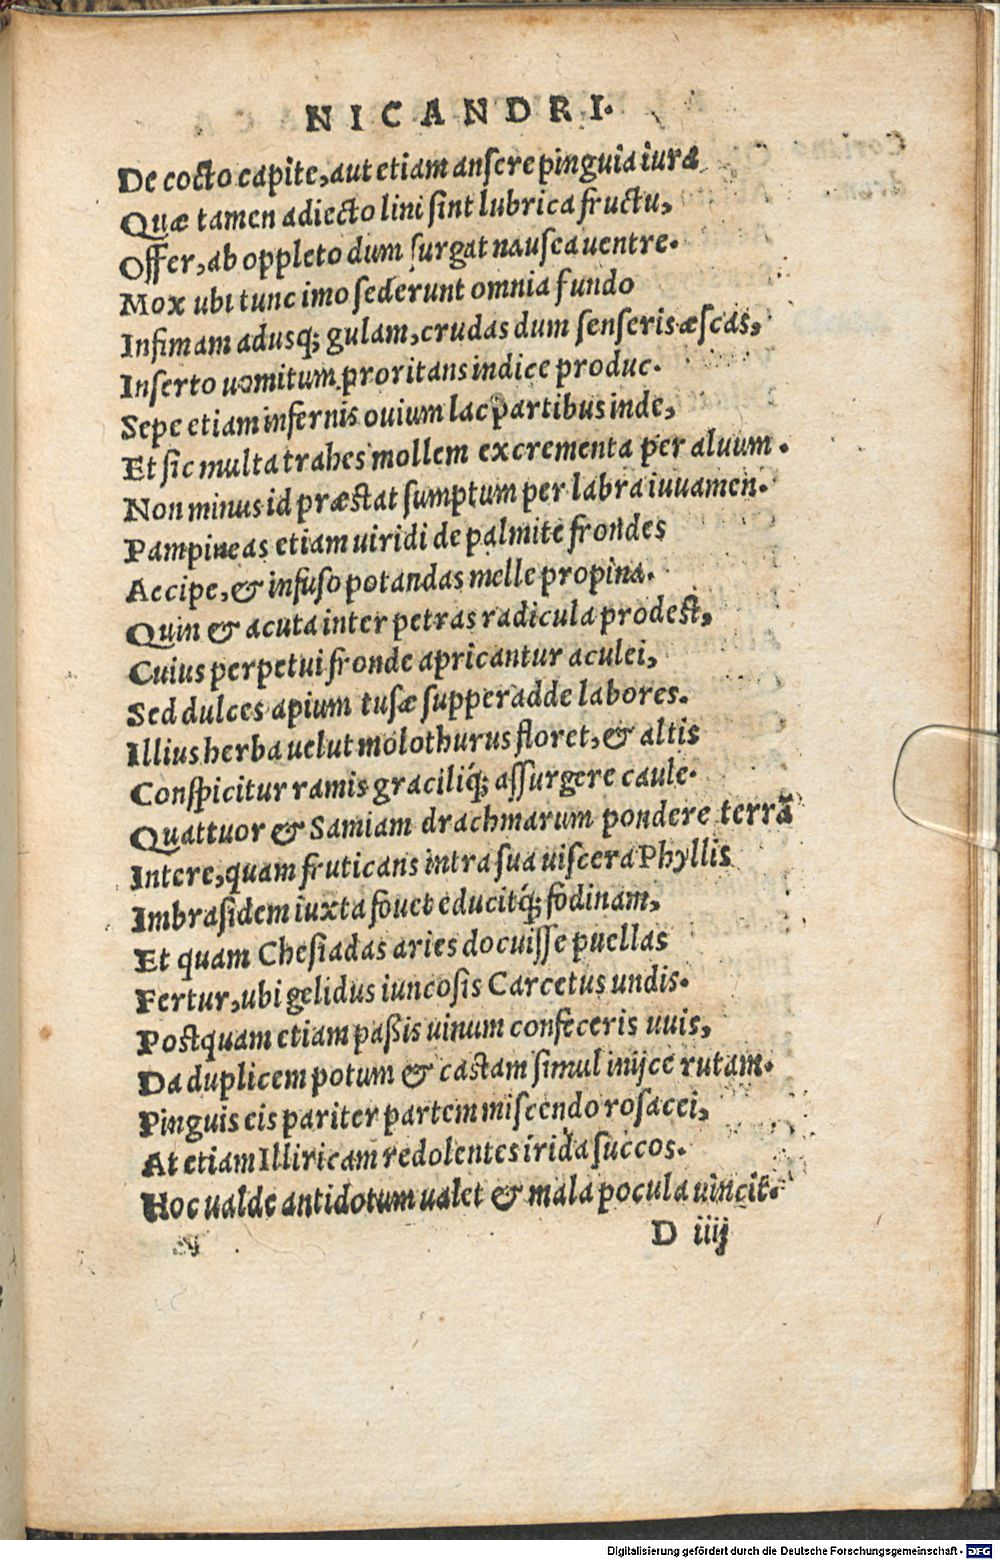 NICANDRI.
De cocto capite, aut etiam ansere pinguia iura
Quæ tamen adiecto lini sint lubrica fructu,
Offer, ab oppleto dum surgat nausea uentre.
Mox ubi tunc imo sederunt omnia fundo
Infimam adusq; gulam, crudas dum senseris æscas,
Inserto uomitum proritans indice produc.
Sepe etiam infernis ouium lac partibus inde,
Et sic multa trahes mollem excrementa per aluum.
Non minus id præstat sumptum per labra iuuamen.
Pampineas etiam uiridi de palmite frondes
Accipe, & infuso potandas melle propina.
Quin & acuta inter petras radicula prodest,
Cuius perpetui fronde apricantur aculei,
Sed dulces apium tusæ supper adde labores.
Illius herba uelut molothurus floret, & altis
Conspicitur ramis graciliq́; assurgere caule.
Quattuor & Samiam drachmarum pondere terrã
Intere, quam fruticans intra sua uiscera Phyllis
Imbrasidem iuxta fouet educitq́; fodinam,
Et quam Chesiadas aries docuisse puellas
Fertur, ubi gelidus iuncosis Carcetus undis.
Postquam etiam paßis uinum confeceris uuis,
Da duplicem potum & castam simul inijce rutam.
Pinguis eis pariter partem miscendo rosacei,
At etiam Illiricam redolentes irida succos.
Hoc ualde antidotum ualet & mala pocula uincit.
D iiij
Digitalisierung gefördert durch die Deutsche Forschungsgemeinschaft - DFG